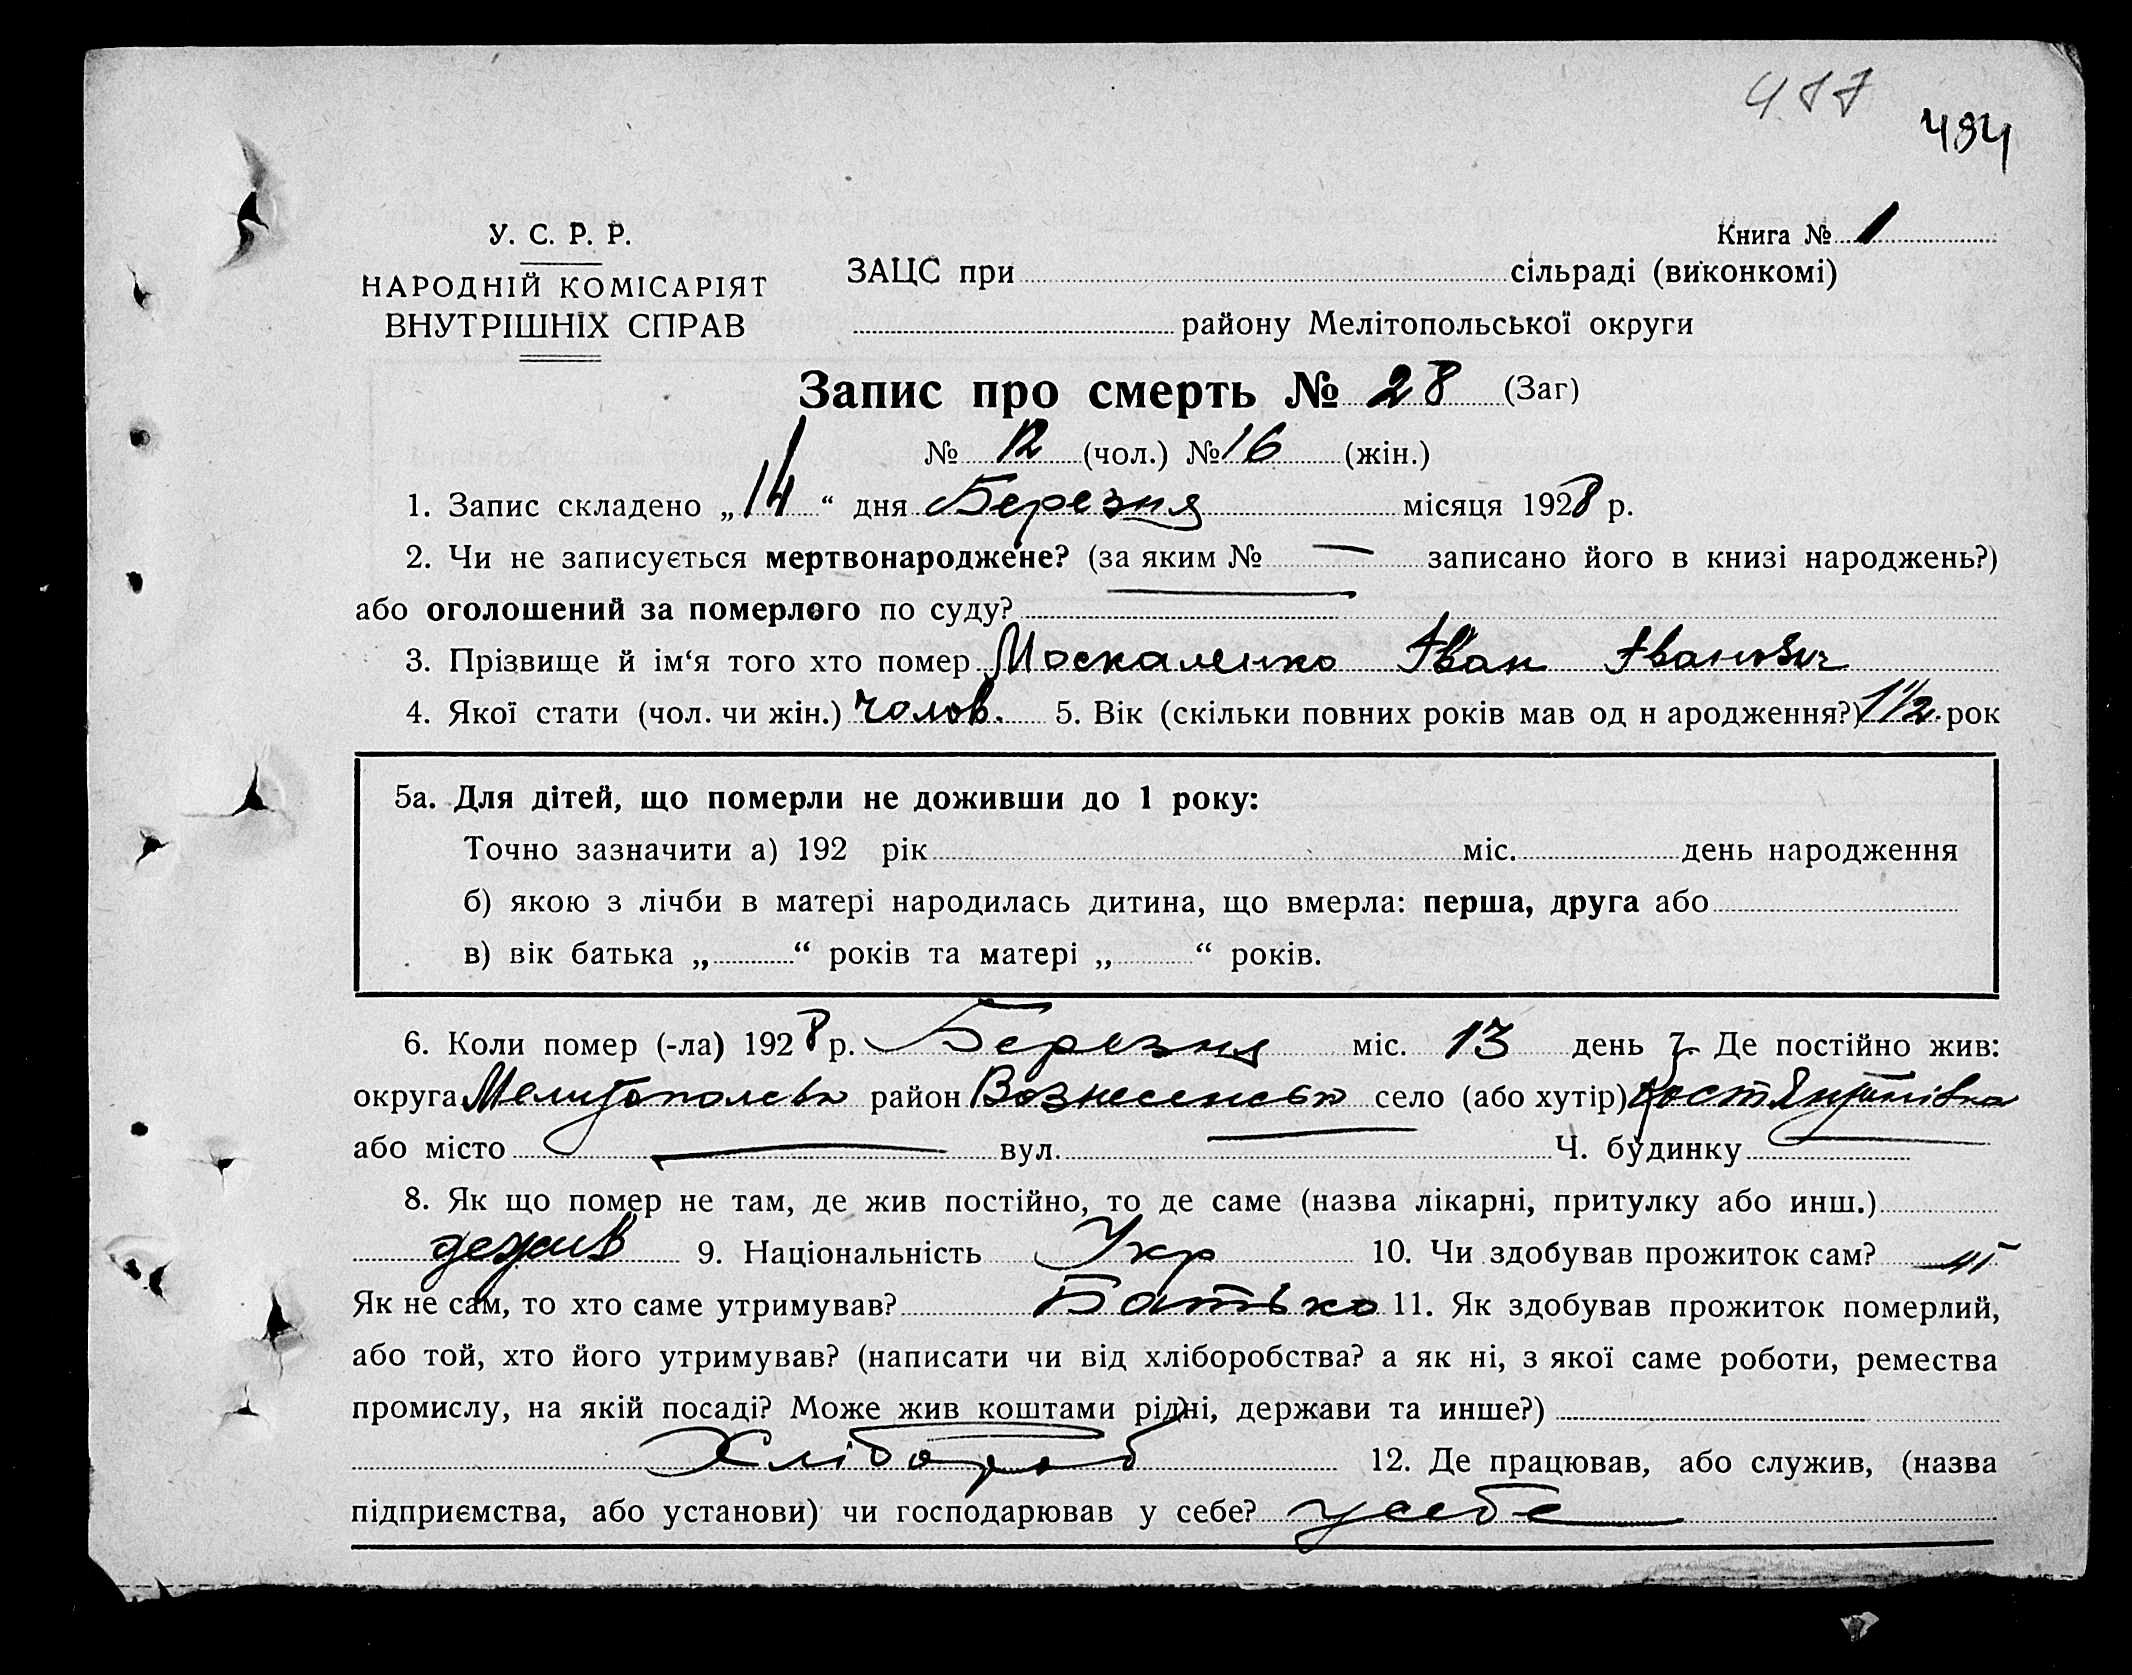 494
У. С. Р. Р.
Книга № 1
НАРОДНІЙ КОМІСАРІЯТ
ВНУТРІШНІХ СПРАВ
ЗАЦС при сільраді (виконкомі)
району Мелітопольської округи
Запис про смерть № 28 (Заг)
№ 12 (чол.) № 16 (жін.)
1. Запис складено „14“ дня Березня місяця 1928 р.
2. Чи не записується мертвонароджене? (за яким № — записано його в книзі народжень?)
або оголошений за померлого по суду? —
3. Прізвище й ім‘я того хто помер Москаленко Іван Іванович
4. Якої стати (чол. чи жін.) чолов. 5. Вік (скільки повних років мав од н ародження?) 1 1/2 рок
5а. Для дітей, що померли не доживши до 1 року:
Точно зазначити а) 192 рік міс. день народження
б) якою з лічби в матері народилась дитина, що вмерла: перша, друга або
в) вік батька „ “ років та матері „ “ років.
6. Коли помер (-ла) 1928 р. Березня міс. 13 день 7. Де постійно жив:
округа Мелітопольськ район Вознесенськ село (або хутір) Костянтинівка
або місто — вул. — Ч. будинку —
8. Як що помер не там, де жив постійно, то де саме (назва лікарні, притулку або инш.)
де жив 9. Національність Укр 10. Чи здобував прожиток сам? ні
Як не сам, то хто саме утримував? Батько 11. Як здобував прожиток померлий,
або той, хто його утримував? (написати чи від хліборобства? а як ні, з якої саме роботи, ремества
промислу, на якій посаді? Може жив коштами рідні, держави та инше?)
Хлібороб 12. Де працював, або служив, (назва
підприємства, або установи) чи господарював у себе? у себе